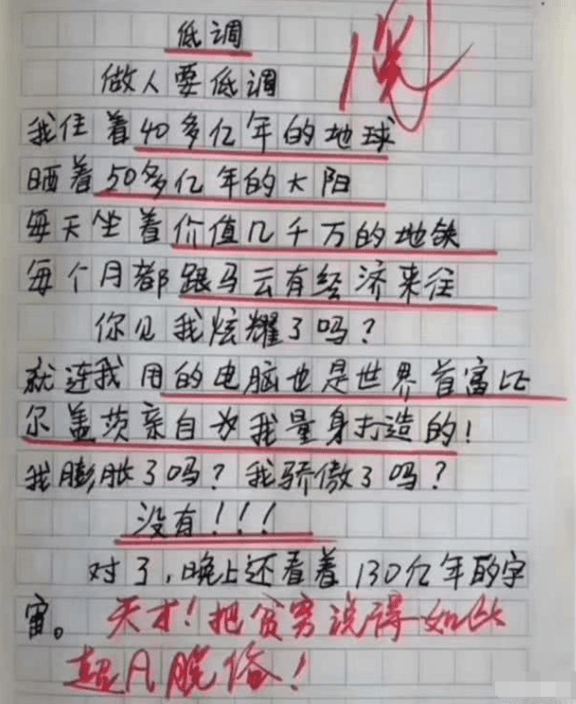 低调
做人要低调
我住着40多亿年的地球
晒着50多亿年的大阳
每天坐着价值几千万的地铁
每个月都跟马云有经济来往
你见我炫耀了吗?
就连我用的电脑也是世界首富比
尔盖茨亲自为我量身打造的!
我膨胀了吗?我骄傲了吗?
没有!!!
对了,晚上还看着130亿年的宇
宙。天才!把贫穷说得如此
超凡脱俗!